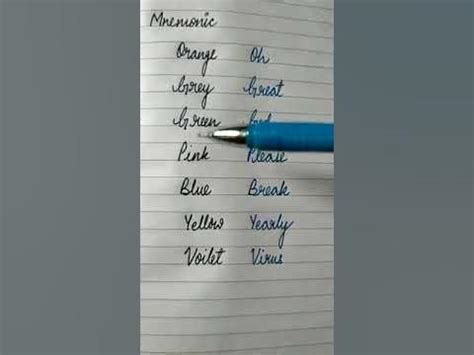 Mnemonic
Orange Oh
Grey Great
Green God
Pink Please
Blue Break
Yellow Yearly
Voilet Virus